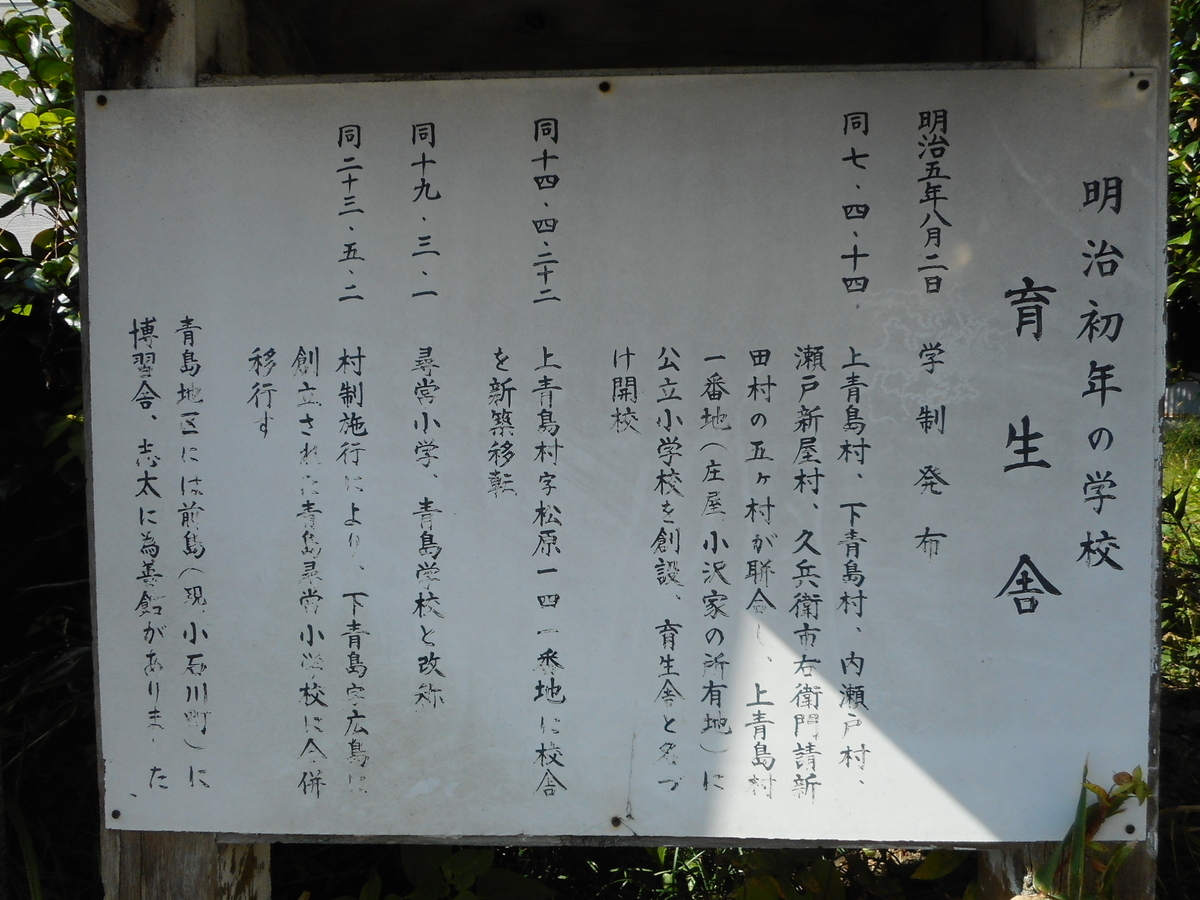 明治初年の学校
育生舎
明治五年八月二日　学制発布
同七、四、十四、上青島村、下青島村、内瀬戸村、
瀬戸新屋村、久兵衛市右衛門請新
田村の五ヶ村が聯合し、上青島村
一番地（庄屋、小沢家の所有地）に
公立小学校を創設、育生舎と名づ
け開校
同十四、四、二十二　上青島村字松原一四一番地に校舎
を新築移転
同十九、三、一　尋常小学、青島学校と改称
同二十三、五、二　村制施行により、下青島字広島に
創立された青島尋常小学校に合併
移行す
青島地区には前島（現、小石川町）に
博習舎、志太に為善館がありました、